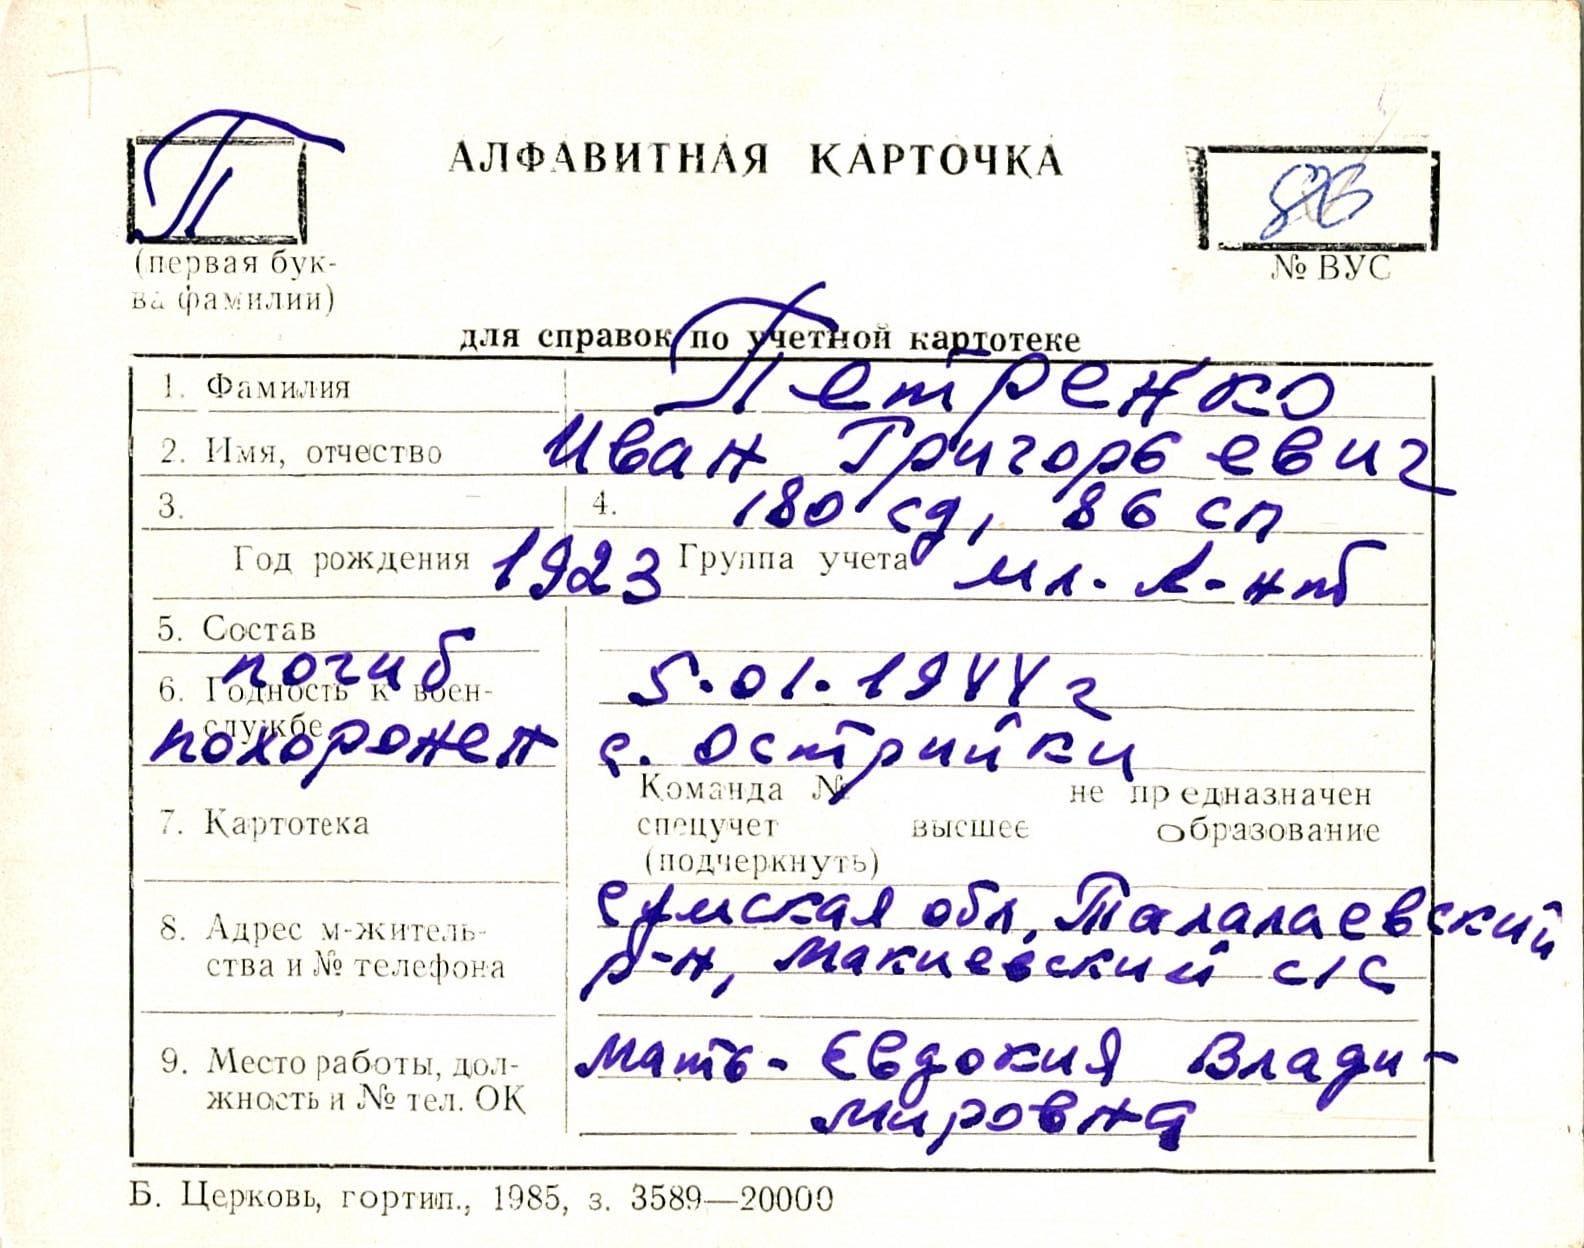 П
АЛФАВИТНАЯ КАРТОЧКА
86
(первая бук-
ва фамилии)
№ ВУС
для справок по учетной картотеке
1. Фамилия Петренко
2. Имя, отчество Иван Григорьевич
3. 4. 180 сд, 86 сп
Год рождения 1923 Группа учета мл. л-нт
5. Состав
погиб 5.01.1944 г
6. Годность к воен-
службе
похоронен с. Острийки
Команда № не предназначен
7. Картотека спецучет высшее образование
(подчеркнуть)
Сумская обл, Талалаевский
8. Адрес м-житель-
ства и № телефона р-н, Макиевский с/с
9. Место работы, дол- Мать - Евдокия Влади-
жность и № тел. ОК мировна
Б. Церковь, гортип., 1985, з. 3589—20000